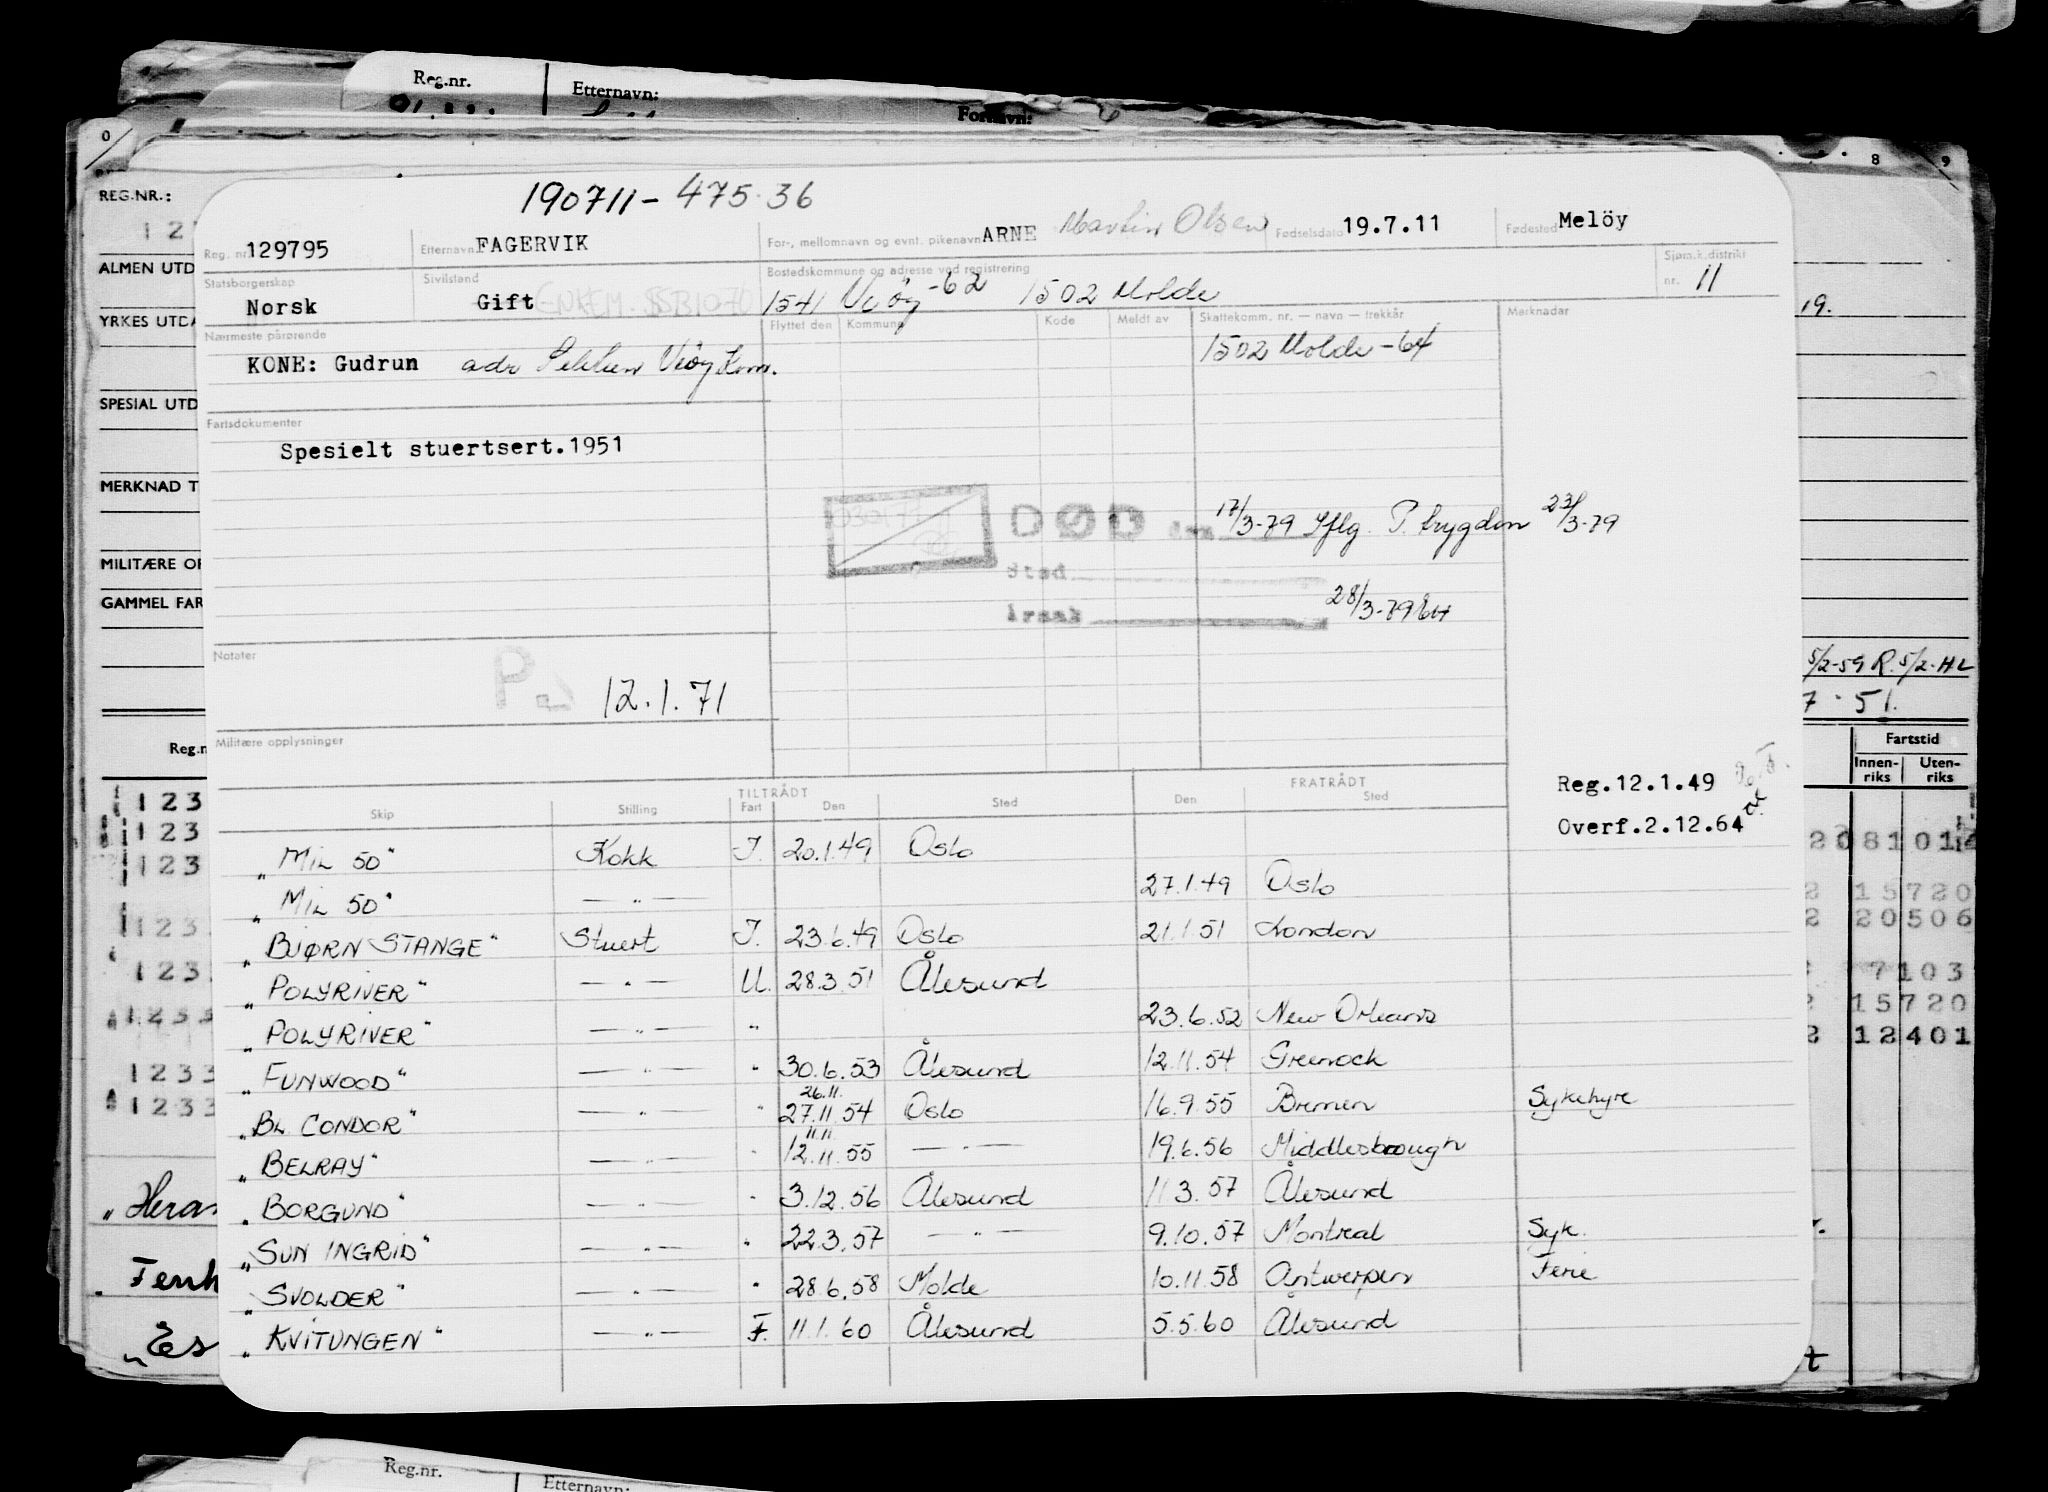 Reg.nr. Etternavn:
Fornavn:
0 8 9
REG.NR.:
ALMEN UTD
YRKES UTDA
19.
SPESIAL UTD
MERKNAD T
MILITÆRE OP
GAMMEL FAR
5/2-59 R. 5/2-HL
7 · 51.
Reg.n
Fartstid
Innen-riks Uten-riks
190711-475.36
Reg. nr. 129795 Etternavn FAGERVIK For-, mellomnavn og evnt. pikenavn ARNE Martin Olsen Fødselsdato 19.7.11 Fødested Melöy
Statsborgerskap Norsk Sivilstand Gift ENKEM. Bostedskommune og adresse ved registrering 1541 Veøy -62 1502 Molde Sjøm.k.distrikt nr. 11
Nærmeste pårørende Flyttet den Kommune Kode Meldt av Skattekomm. nr. — navn — trekkår Merknader
KONE: Gudrun adr Sekken Veøy Kom. 1502 Molde -64
Fartsdokumenter
Spesielt stuertsert.1951
DØD den 17/3-79 Iflg. P. trygden 23/3-79
Sted
Årsak 28/3-79
Notater
P. 12.1.71
Militære opplysninger
Reg.12.1.49
Overf.2.12.64
TILTRÅDT FRATRÅDT
Skip Stilling Fart Den Sted Den Sted
„MIL 50" Kokk I. 20.1.49 Oslo
„MIL 50" —„— 27.1.49 Oslo
„BJØRN STANGE" Stuert I. 23.6.49 Oslo 21.1.51 London
„POLYRIVER" —„— U. 28.3.51 Ålesund
„POLYRIVER" —„— „ 23.6.52 New Orleans
„FUNWOOD" —„— „ 30.6.53 Ålesund 12.11.54 Greenock
26.11.
„BL. CONDOR" —„— „ 27.11.54 Oslo 16.9.55 Bremen Sykehyre
11.11
„BELRAY" —„— „ 12.11.55 —„— 19.6.56 Middlesbrough
„BORGUND" —„— „ 3.12.56 Ålesund 11.3.57 Ålesund
„SUN INGRID" —„— „ 22.3.57 —„— 9.10.57 Montreal Syk.
„SVOLDER" —„— „ 28.6.58 Molde 10.11.58 Antwerpen Ferie
„KVITUNGEN" —„— F. 11.1.60 Ålesund 5.5.60 Ålesund
123
123
123
123
123
1233
1233
1233
81012
15720
20506
7103
15720
12401
Reg.nr. Etternavn: